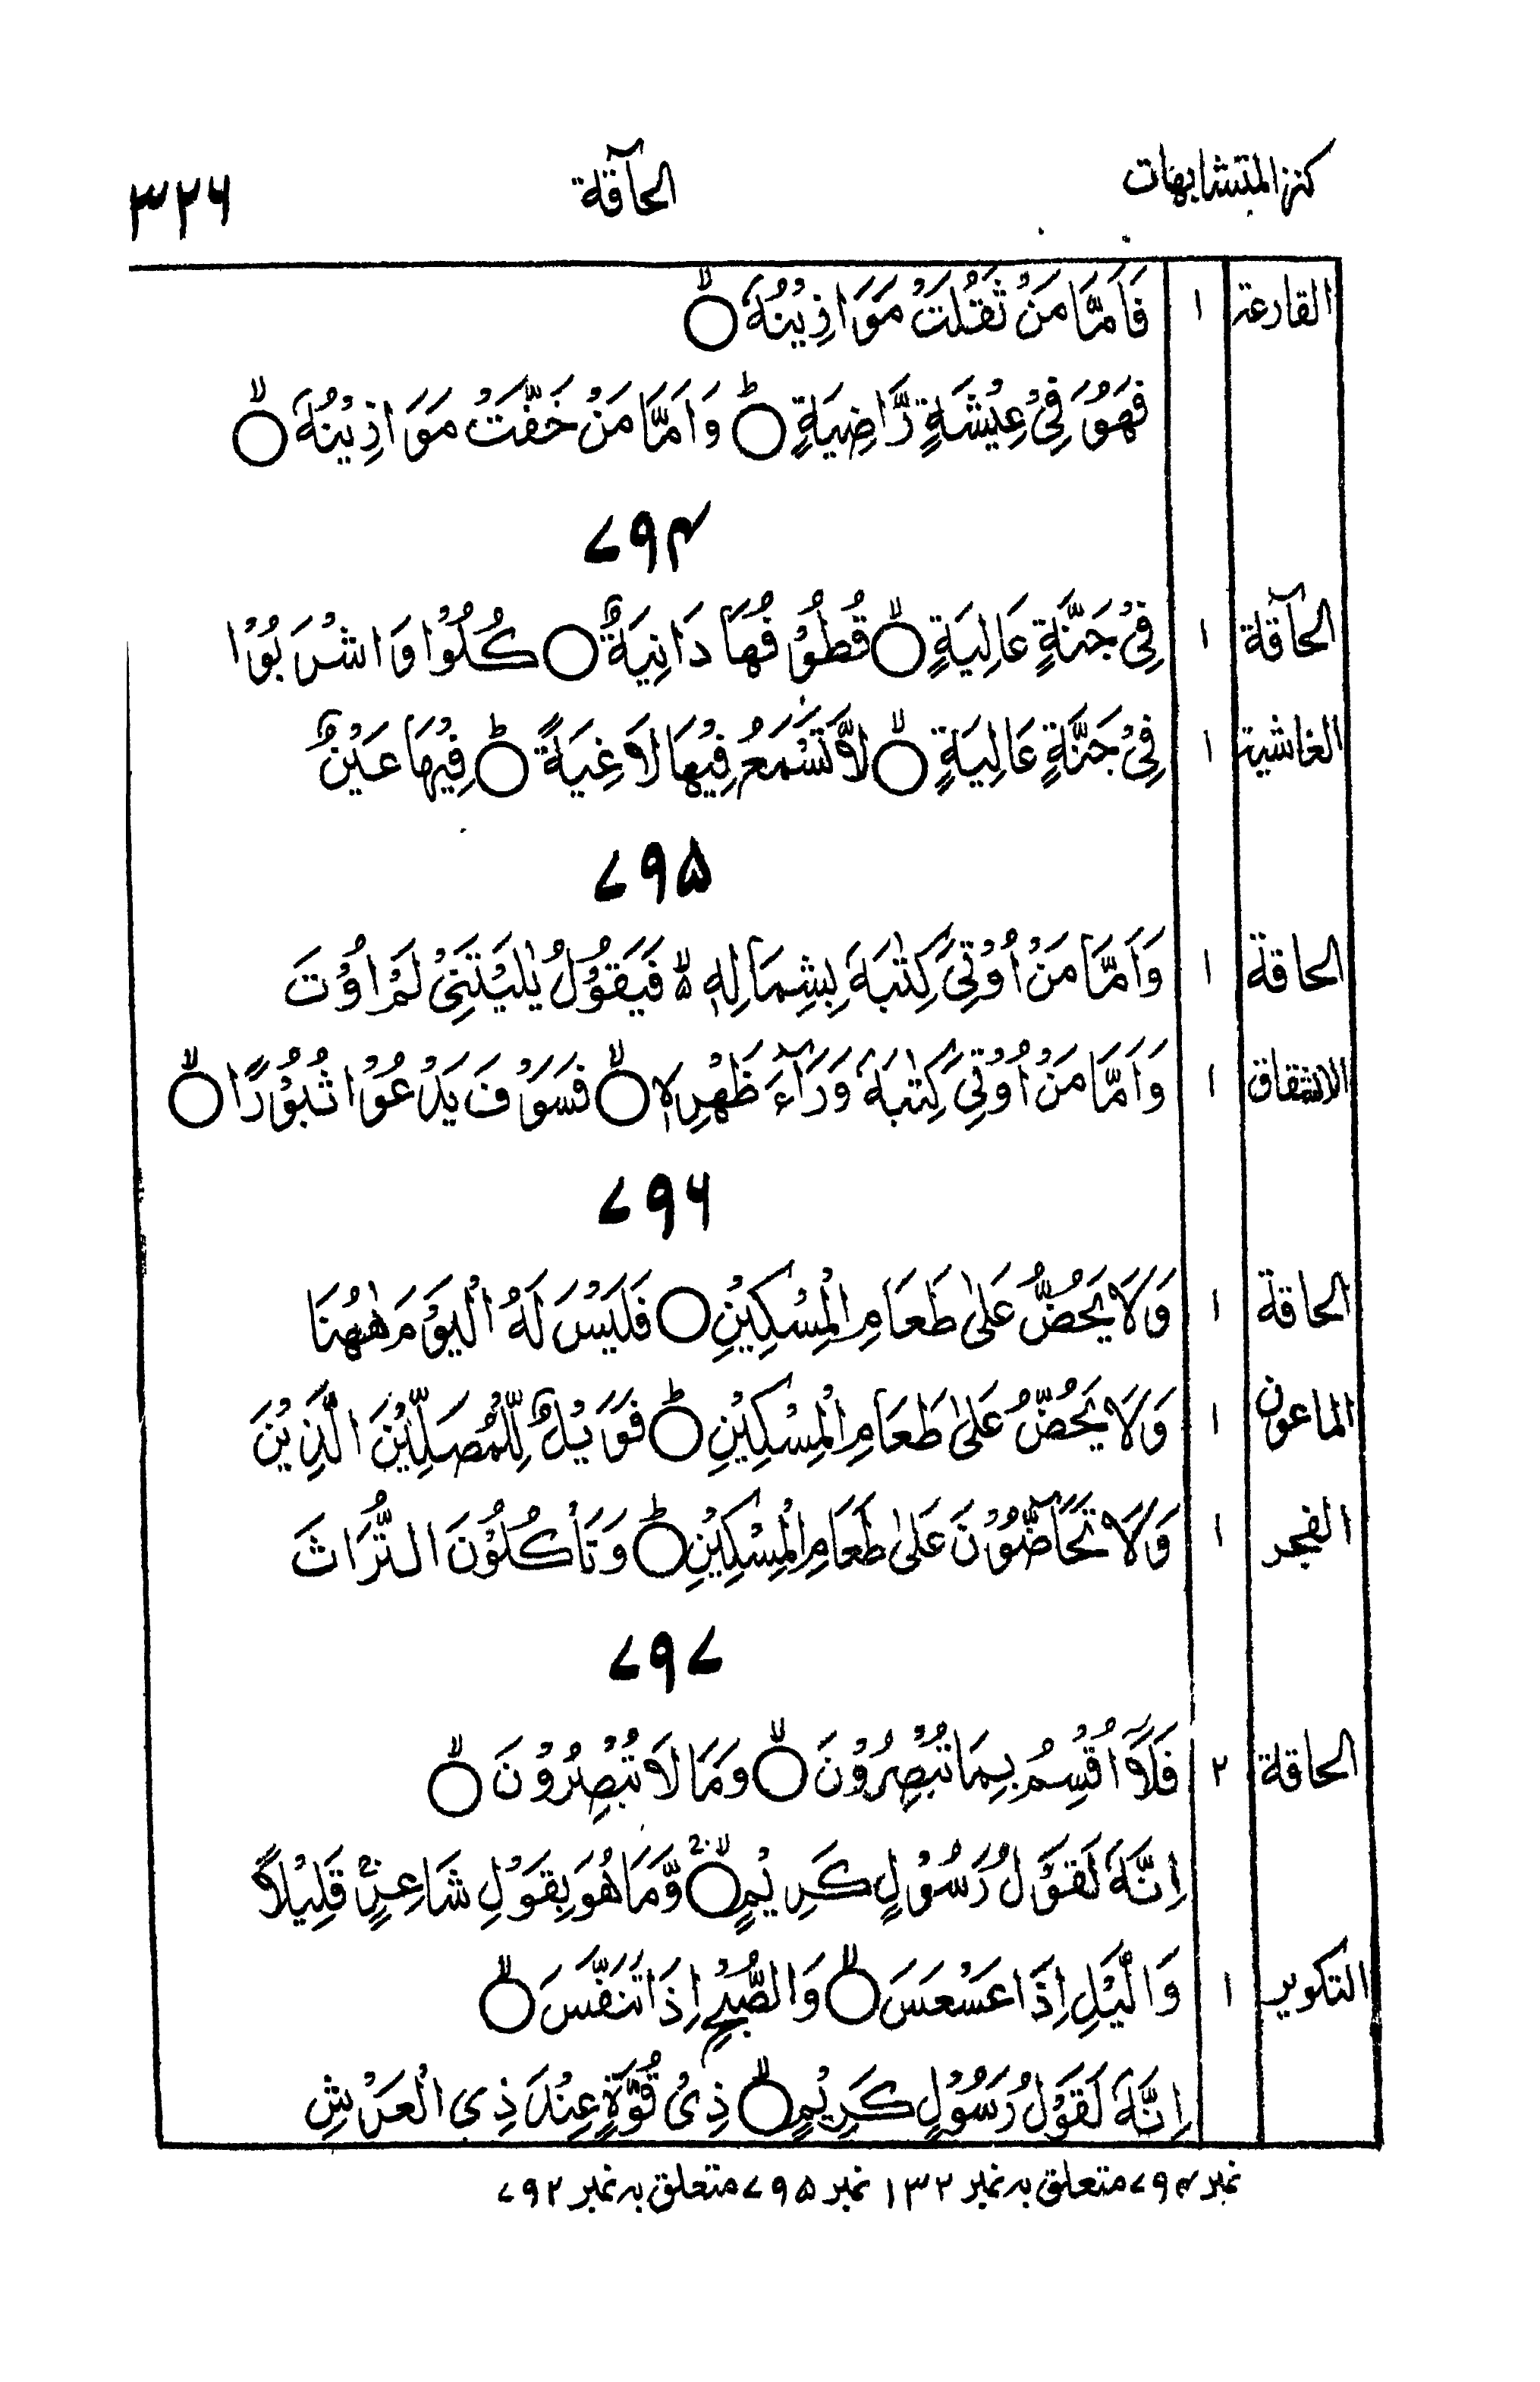 كنز المتشابهات الحآقة ٣٢٦
القارعة ١ فَاَمَّا مَنْ ثَقُلَتْ مَوَازِيْنُهٗ ۙ
فَهُوَ فِىْ عِيْشَةٍ رَّاضِيَةٍ ؕ وَاَمَّا مَنْ خَفَّتْ مَوَازِيْنُهٗ ۙ
۷۹۴
الحآقة ١ فِىْ جَنَّةٍ عَالِيَةٍ ۙ قُطُوْفُهَا دَانِيَةٌ ○ كُلُوْا وَاشْرَبُوْا
الغاشية ١ فِىْ جَنَّةٍ عَالِيَةٍ ۙ لَّا تَسْمَعُ فِيْهَا لَاغِيَةً ؕ فِيْهَا عَيْنٌ
۷۹۵
الحاقة ١ وَاَمَّا مَنْ اُوْتِىَ كِتٰبَهٗ بِشِمَالِهٖ ۙ۬ فَيَقُوْلُ يٰلَيْتَنِىْ لَمْ اُوْتَ
الانشقاق ١ وَاَمَّا مَنْ اُوْتِىَ كِتٰبَهٗ وَرَآءَ ظَهْرِهٖ ۙ فَسَوْفَ يَدْعُوْا ثُبُوْرًا ۙ
۷۹۶
الحاقة ١ وَلَا يَحُضُّ عَلٰى طَعَامِ الْمِسْكِيْنِ ○ فَلَيْسَ لَهُ الْيَوْمَ هٰهُنَا
الماعون ١ وَلَا يَحُضُّ عَلٰى طَعَامِ الْمِسْكِيْنِ ؕ فَوَيْلٌ لِّلْمُصَلِّيْنَ الَّذِيْنَ
الفجر ١ وَلَا تَحٰٓضُّوْنَ عَلٰى طَعَامِ الْمِسْكِيْنِ ؕ وَتَاْكُلُوْنَ التُّرَاثَ
۷۹۷
الحاقة ٢ فَلَاۤ اُقْسِمُ بِمَا تُبْصِرُوْنَ ۙ وَمَا لَا تُبْصِرُوْنَ ۙ
اِنَّهٗ لَقَوْلُ رَسُوْلٍ كَرِيْمٍ ۙ وَّمَا هُوَ بِقَوْلِ شَاعِرٍ ؕ قَلِيْلًا
التكوير ١ وَالَّيْلِ اِذَا عَسْعَسَ ۙ وَالصُّبْحِ اِذَا تَنَفَّسَ ۙ
اِنَّهٗ لَقَوْلُ رَسُوْلٍ كَرِيْمٍ ۙ ذِىْ قُوَّةٍ عِنْدَ ذِى الْعَرْشِ
نمبر ۷۹۴ متعلق بہ نمبر ۱۳۲ نمبر ۷۹۵ متعلق بہ نمبر ۷۹۲